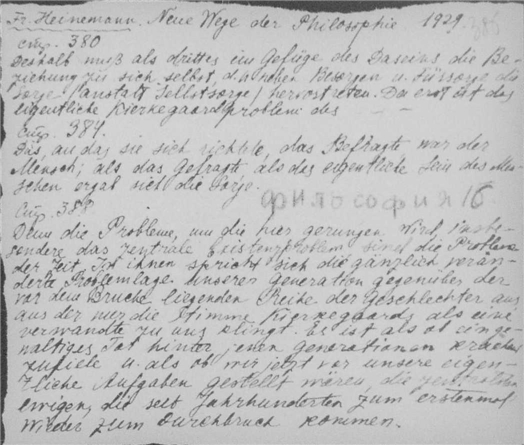 Fr. Heinemann. Neue Wege der Philosophie 1929.
стр. 380
Deshalb muß als drittes im Gefüge des Daseins die Be-
ziehung zu sich selbst, d.h. neben Besorgen u. Fürsorge die
Sorge (anstatt Selbstsorge) hervortreten. Da erst ist das
eigentliche Kierkegaardproblem des — —
Стр. 384.
Das, an das sie sich richtete, das Befragte war der
Mensch; als das Gefragte, als das eigentliche Sein des Men-
schen ergab sich die Sorge.
философия 16
Стр. 388
Denn die Probleme, um die hier gerungen wird, insbe-
sondere das zentrale Existenzproblem sind die Probleme
der Zeit. In ihnen spricht sich die gänzlich verän-
derte Problemlage unserer Generation gegenüber der
vor dem Bruche liegenden Reihe der Geschlechter aus
aus der nur die Stimme Kierkegaards als eine
verwandte zu uns klingt. Es ist als ob ein ge-
waltiges Tor hinter jenen Generationen krachend
zufiele u. als ob wir jetzt vor unsere eigen-
tliche Aufgaben gestellt wären, die zentralen
ewigen, die seit Jahrhunderten zum erstenmal
wieder zum Durchbruch kommen.